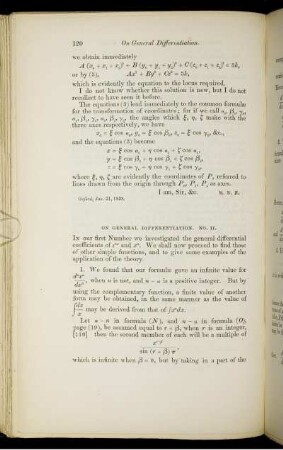 120 On General Differentiation.
we obtain immediately
or by (3), Ax² + By² + Cz² = 3k,
which is evidently the equation to the locus required.
I do not know whether this solution is new, but I do not
recollect to have seen it before.
The equations (3) lead immediately to the common formulæ
for the transformation of coordinates; for if we call
the angles which ξ, η, ζ make with the
three axes respectively, we have
and the equations (3) become
x = ξ cos α, + η cos α, + ζ cos α,,
y = ξ cos β, + η cos β, + ζ cos β,,
z = ξ cos γ, + η cos γ, + ζ cos γ,,
where ξ, η, ζ are evidently the coordinates of P, referred to
lines drawn from the origin through P, P, P, as axes.
I am, Sir, &c.
ON GENERAL DIFFERENTIATION. NO. II.
In our first Number we investigated the general differential
coefficients of and xⁿ. We shall now proceed to find those
of other simple functions, and to give some examples of the
application of the theory.
1. We found that our formula gave an infinite value for
when n is not, and n − a is a positive integer. But by
using the complementary function, a finite value of another
form may be obtained, in the same manner as the value of
∫dx/x may be derived from that of
Let in formula (N), and in formula (O)
page (19), be assumed equal to r + β, when r is an integer,
[110] then the second member of each will be a multiple of
sin (r + β) π
which is infinite when β = 0, but by taking in a part of the